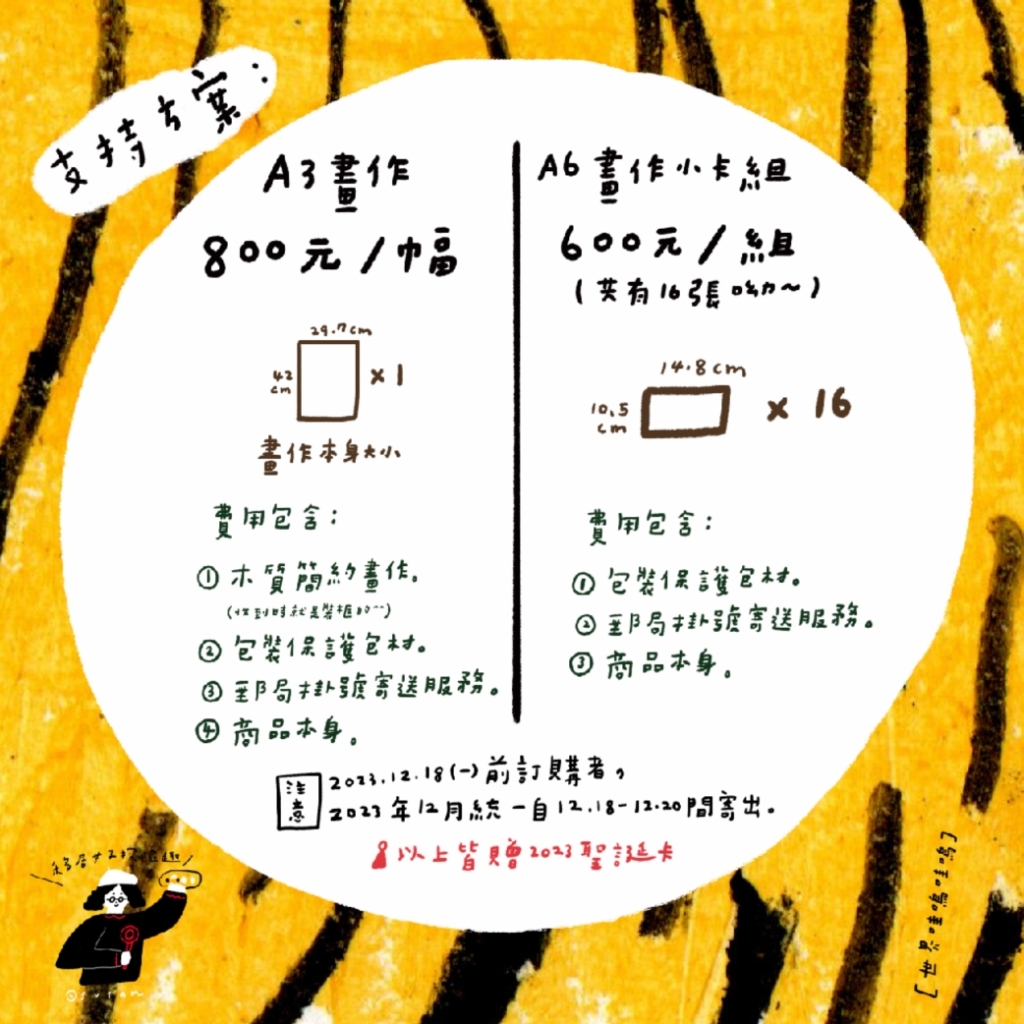 支持方案：
A3畫作
800元/幅
29.7cm
42
cm
x 1
畫作本身大小
費用包含：
① 木質簡約畫作。
(收到時就是裝框的~)
② 包裝保護包材。
③ 郵局掛號寄送服務。
④ 商品本身。
A6畫作小卡組
600元/組
(共有16張呦~)
14.8cm
10.5
cm
x 16
費用包含：
① 包裝保護包材。
② 郵局掛號寄送服務。
③ 商品本身。
注意
2023.12.18(一)前訂購者。
2023年12月統一自12.18-12.20間寄出。
以上皆贈2023聖誕卡